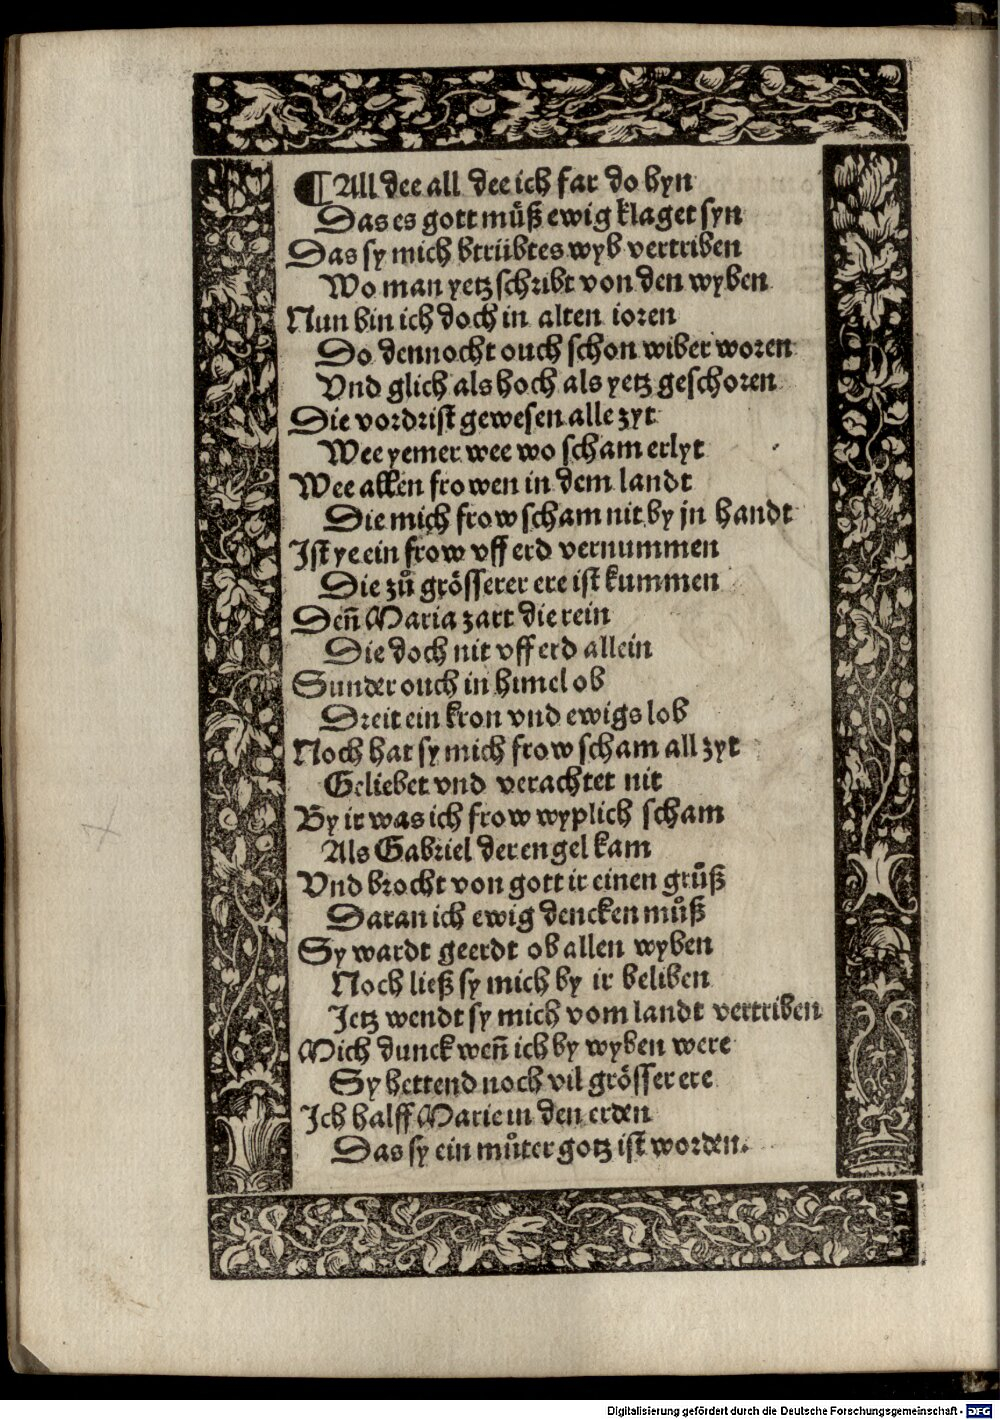 ¶ All dee all dee ich far do hyn
Das es gott muͤß ewig klaget syn
Das sy mich btrübtes wyb vertriben
Wo man yetz schribt von den wyben
Nun bin ich doch in alten ioren
Do dennocht ouch schon wiber woren
Vnd glich als hoch als yetz geschoren
Die vordrist gewesen alle zyt
Wee yemer wee wo scham erlyt
Wee allen frowen in dem landt
Die mich frow scham nit by jn handt
Ist ye ein frow vff erd vernummen
Die zuͦ grösserer ere ist kummen
Deñ Maria zart die rein
Die doch nit vff erd allein
Sunder ouch in himel ob
Dreit ein kron vnd ewigs lob
Noch hat sy mich frow scham all zyt
Geliebet vnd verachtet nit
By ir was ich frow wyplich scham
Als Gabriel der engel kam
Vnd brocht von gott ir einen gruͦß
Daran ich ewig dencken muͦß
Sy wardt geerdt ob allen wyben
Noch ließ sy mich by ir beliben
Jetz wendt sy mich vom landt vertriben
Mich dunck weñ ich by wyben were
Sy hettend noch vil grösser ere
Ich halff Marie in den erden
Das sy ein muͦter gotz ist worden.
Digitalisierung gefördert durch die Deutsche Forschungsgemeinschaft - DFG